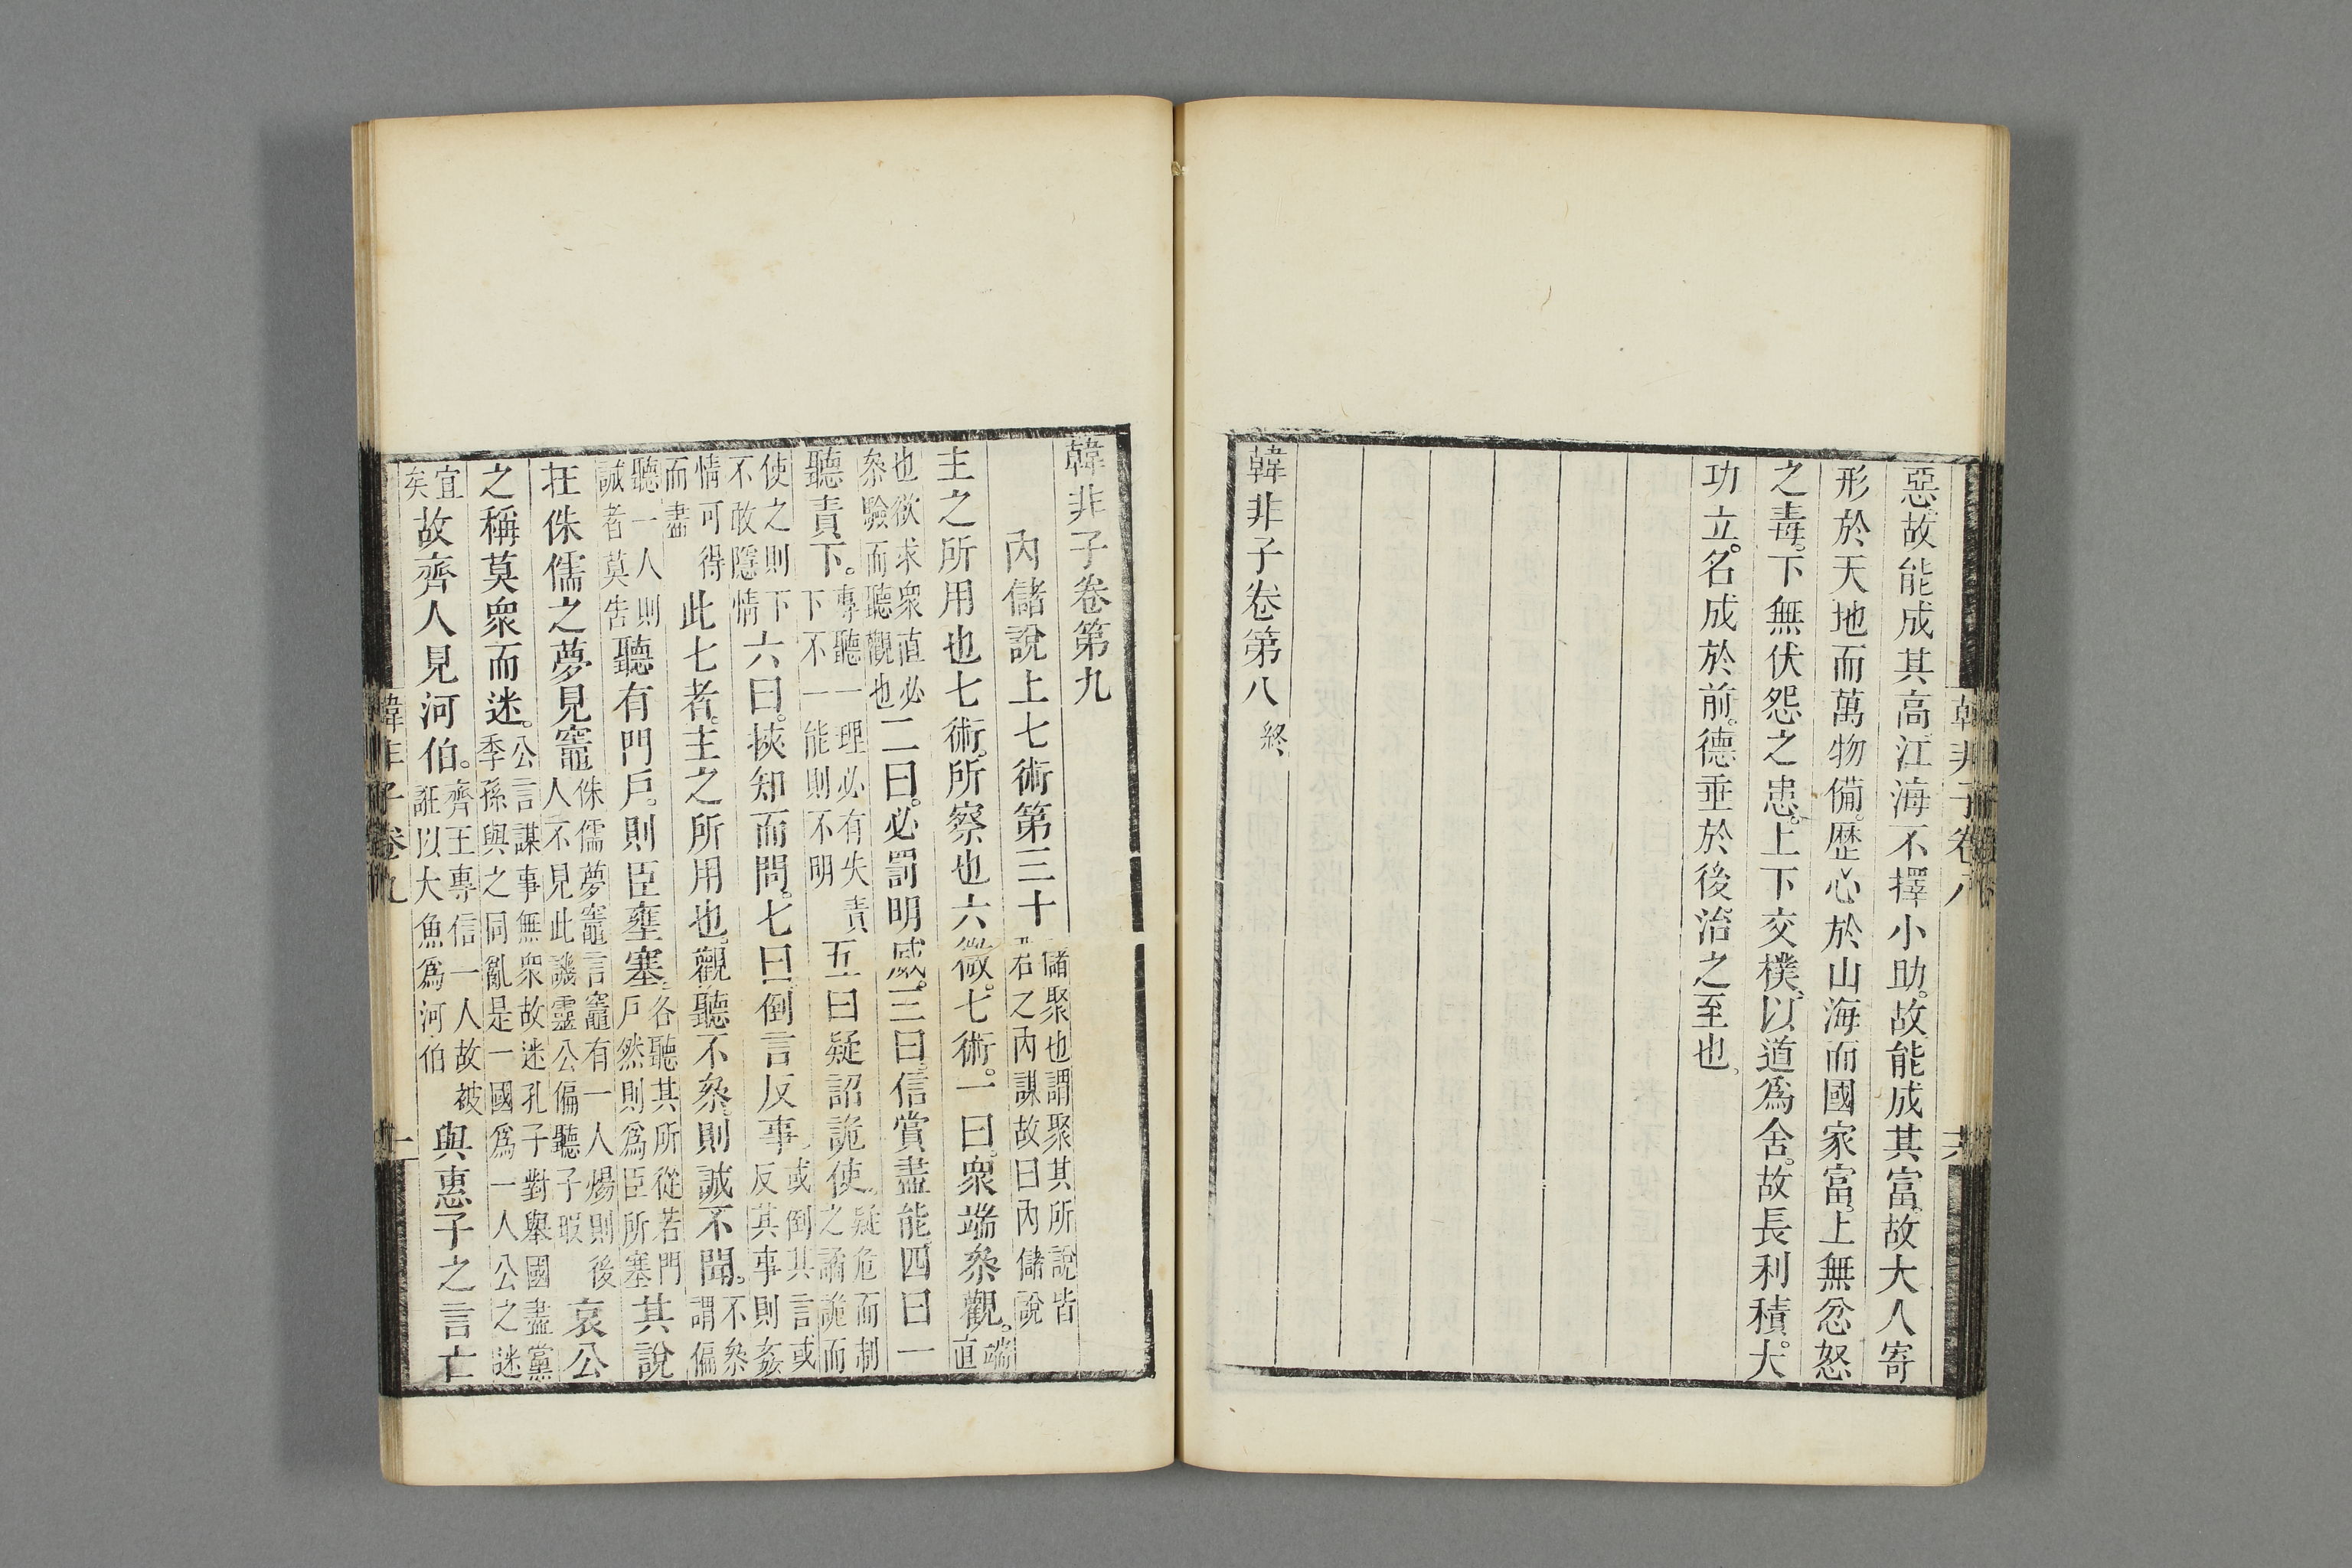 韓非子卷八 十六
惡。故能成其高。江海不擇小助。故能成其富。故大人寄
形於天地而萬物備。歷心於山海而國家富。上無忿怒
之毒。下無伏怨之患。上下交樸。以道爲舍。故長利積。大
功立。名成於前。德垂於後。治之至也。
韓非子卷第八 終
韓非子卷第九
內儲說上七術第三十 儲聚也謂聚其所說皆君之內謀故曰內儲說
主之所用也七術。所察也六微。七術。一曰。衆端叅觀。端直
也欲求衆直必叅驗而聽觀也二曰。必罰明威。三曰。信賞盡能。四曰一
聽責下。專聽一理必有失責下不一能則不明五曰疑詔詭使。疑危而制之譎詭而
使之則下不敢隱情六曰。挾知而問。七曰。倒言反事。或倒其言或反其事則姦
情可得而盡此七者。主之所用也。觀聽不叅。則誠不聞。不叅謂偏
聽一人則誠者莫告聽有門戶。則臣壅塞。各聽其所從若門戶然則爲臣所塞其說
在侏儒之夢見竈侏儒夢竈言竈有一人煬則後人不見此譏靈公偏聽子瑕哀公
之稱莫衆而迷。公言謀事無衆故迷孔子對舉國盡黨季孫與之同亂是一國爲一人公之迷
宜矣故齊人見河伯。齊王專信一人故被誑以大魚爲河伯與惠子之言亡
韓非子卷九 一